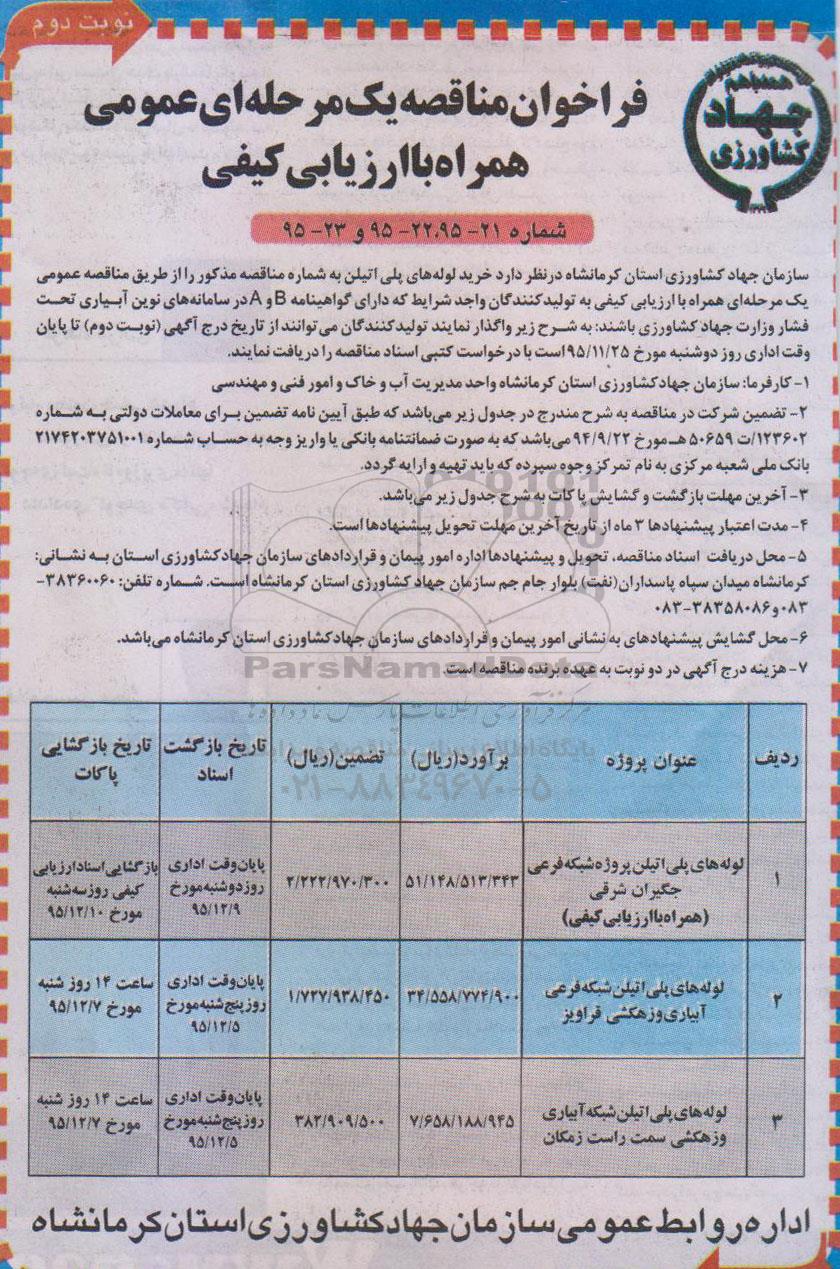 نوبت دوم
همه با هم
جهاد
کشاورزی
فراخوان مناقصه یک مرحله‌ای عمومی
همراه با ارزیابی کیفی
شماره ۲۱- ۹۵، ۲۲- ۹۵ و ۲۳- ۹۵
سازمان جهاد کشاورزی استان کرمانشاه در نظر دارد خرید لوله‌های پلی اتیلن به شماره مناقصه مذکور را از طریق مناقصه عمومی
یک مرحله‌ای همراه با ارزیابی کیفی به تولیدکنندگان واجد شرایط که دارای گواهینامه B و A در سامانه‌های نوین آبیاری تحت
فشار وزارت جهاد کشاورزی باشند: به شرح زیر واگذار نمایند تولیدکنندگان می‌توانند از تاریخ درج آگهی (نوبت دوم) تا پایان
وقت اداری روز دوشنبه مورخ ۹۵/۱۱/۲۵ است با درخواست کتبی اسناد مناقصه را دریافت نمایند.
۱- کارفرما: سازمان جهاد کشاورزی استان کرمانشاه واحد مدیریت آب و خاک و امور فنی و مهندسی
۲- تضمین شرکت در مناقصه به شرح مندرج در جدول زیر می‌باشد که طبق آیین نامه تضمین برای معاملات دولتی به شماره
۱۲۳۶۰۲/ت ۵۰۶۵۹ هـ مورخ ۹۴/۹/۲۲ می‌باشد که به صورت ضمانتنامه بانکی یا واریز وجه به حساب شماره ۲۱۷۴۲۰۳۷۵۱۰۰۱
بانک ملی شعبه مرکزی به نام تمرکز وجوه سپرده که باید تهیه و ارایه گردد.
۳- آخرین مهلت بازگشت و گشایش پاکات به شرح جدول زیر می‌باشد.
۴- مدت اعتبار پیشنهادها ۳ ماه از تاریخ آخرین مهلت تحویل پیشنهادها است.
۵- محل دریافت اسناد مناقصه، تحویل و پیشنهادها اداره امور پیمان و قراردادهای سازمان جهاد کشاورزی استان به نشانی:
کرمانشاه میدان سپاه پاسداران(نفت) بلوار جام جم سازمان جهاد کشاورزی استان کرمانشاه است. شماره تلفن: ۳۸۳۶۰۰۶۰-
۰۸۳ و ۳۸۳۵۸۰۸۶-۰۸۳
۶- محل گشایش پیشنهادهای به نشانی امور پیمان و قراردادهای سازمان جهاد کشاورزی استان کرمانشاه می‌باشد.
۷- هزینه درج آگهی در دو نوبت به عهده برنده مناقصه است.
ParsNamadData
مرکز فرآوری اطلاعات پارس نماد داده‌ها
۰۲۱-۸۸۳۴۹۶۷۰-۵
ردیف عنوان پروژه برآورد(ریال) تضمین(ریال) تاریخ بازگشت اسناد تاریخ بازگشایی پاکات
۱ لوله‌های پلی اتیلن پروژه شبکه فرعی جگیران شرقی (همراه با ارزیابی کیفی) ۵۱/۱۴۸/۵۱۳/۳۴۳ ۲/۲۲۲/۹۷۰/۳۰۰ پایان وقت اداری روز دوشنبه مورخ ۹۵/۱۲/۹ بازگشایی اسناد ارزیابی کیفی روز سه شنبه مورخ ۹۵/۱۲/۱۰
۲ لوله‌های پلی اتیلن شبکه فرعی آبیاری و زهکشی قراویز ۳۴/۵۵۸/۷۷۴/۹۰۰ ۱/۷۲۷/۹۳۸/۴۵۰ پایان وقت اداری روز پنج شنبه مورخ ۹۵/۱۲/۵ ساعت ۱۴ روز شنبه مورخ ۹۵/۱۲/۷
۳ لوله‌های پلی اتیلن شبکه آبیاری و زهکشی سمت راست زمکان ۷/۶۵۸/۱۸۸/۹۴۵ ۳۸۲/۹۰۹/۵۰۰ پایان وقت اداری روز پنج شنبه مورخ ۹۵/۱۲/۵ ساعت ۱۴ روز شنبه مورخ ۹۵/۱۲/۷
اداره روابط عمومی سازمان جهاد کشاورزی استان کرمانشاه